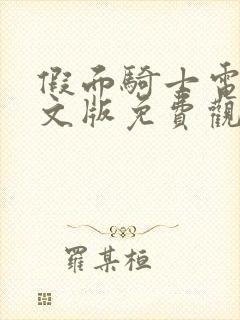 假面騎士電
文版免費觀
羅某桓